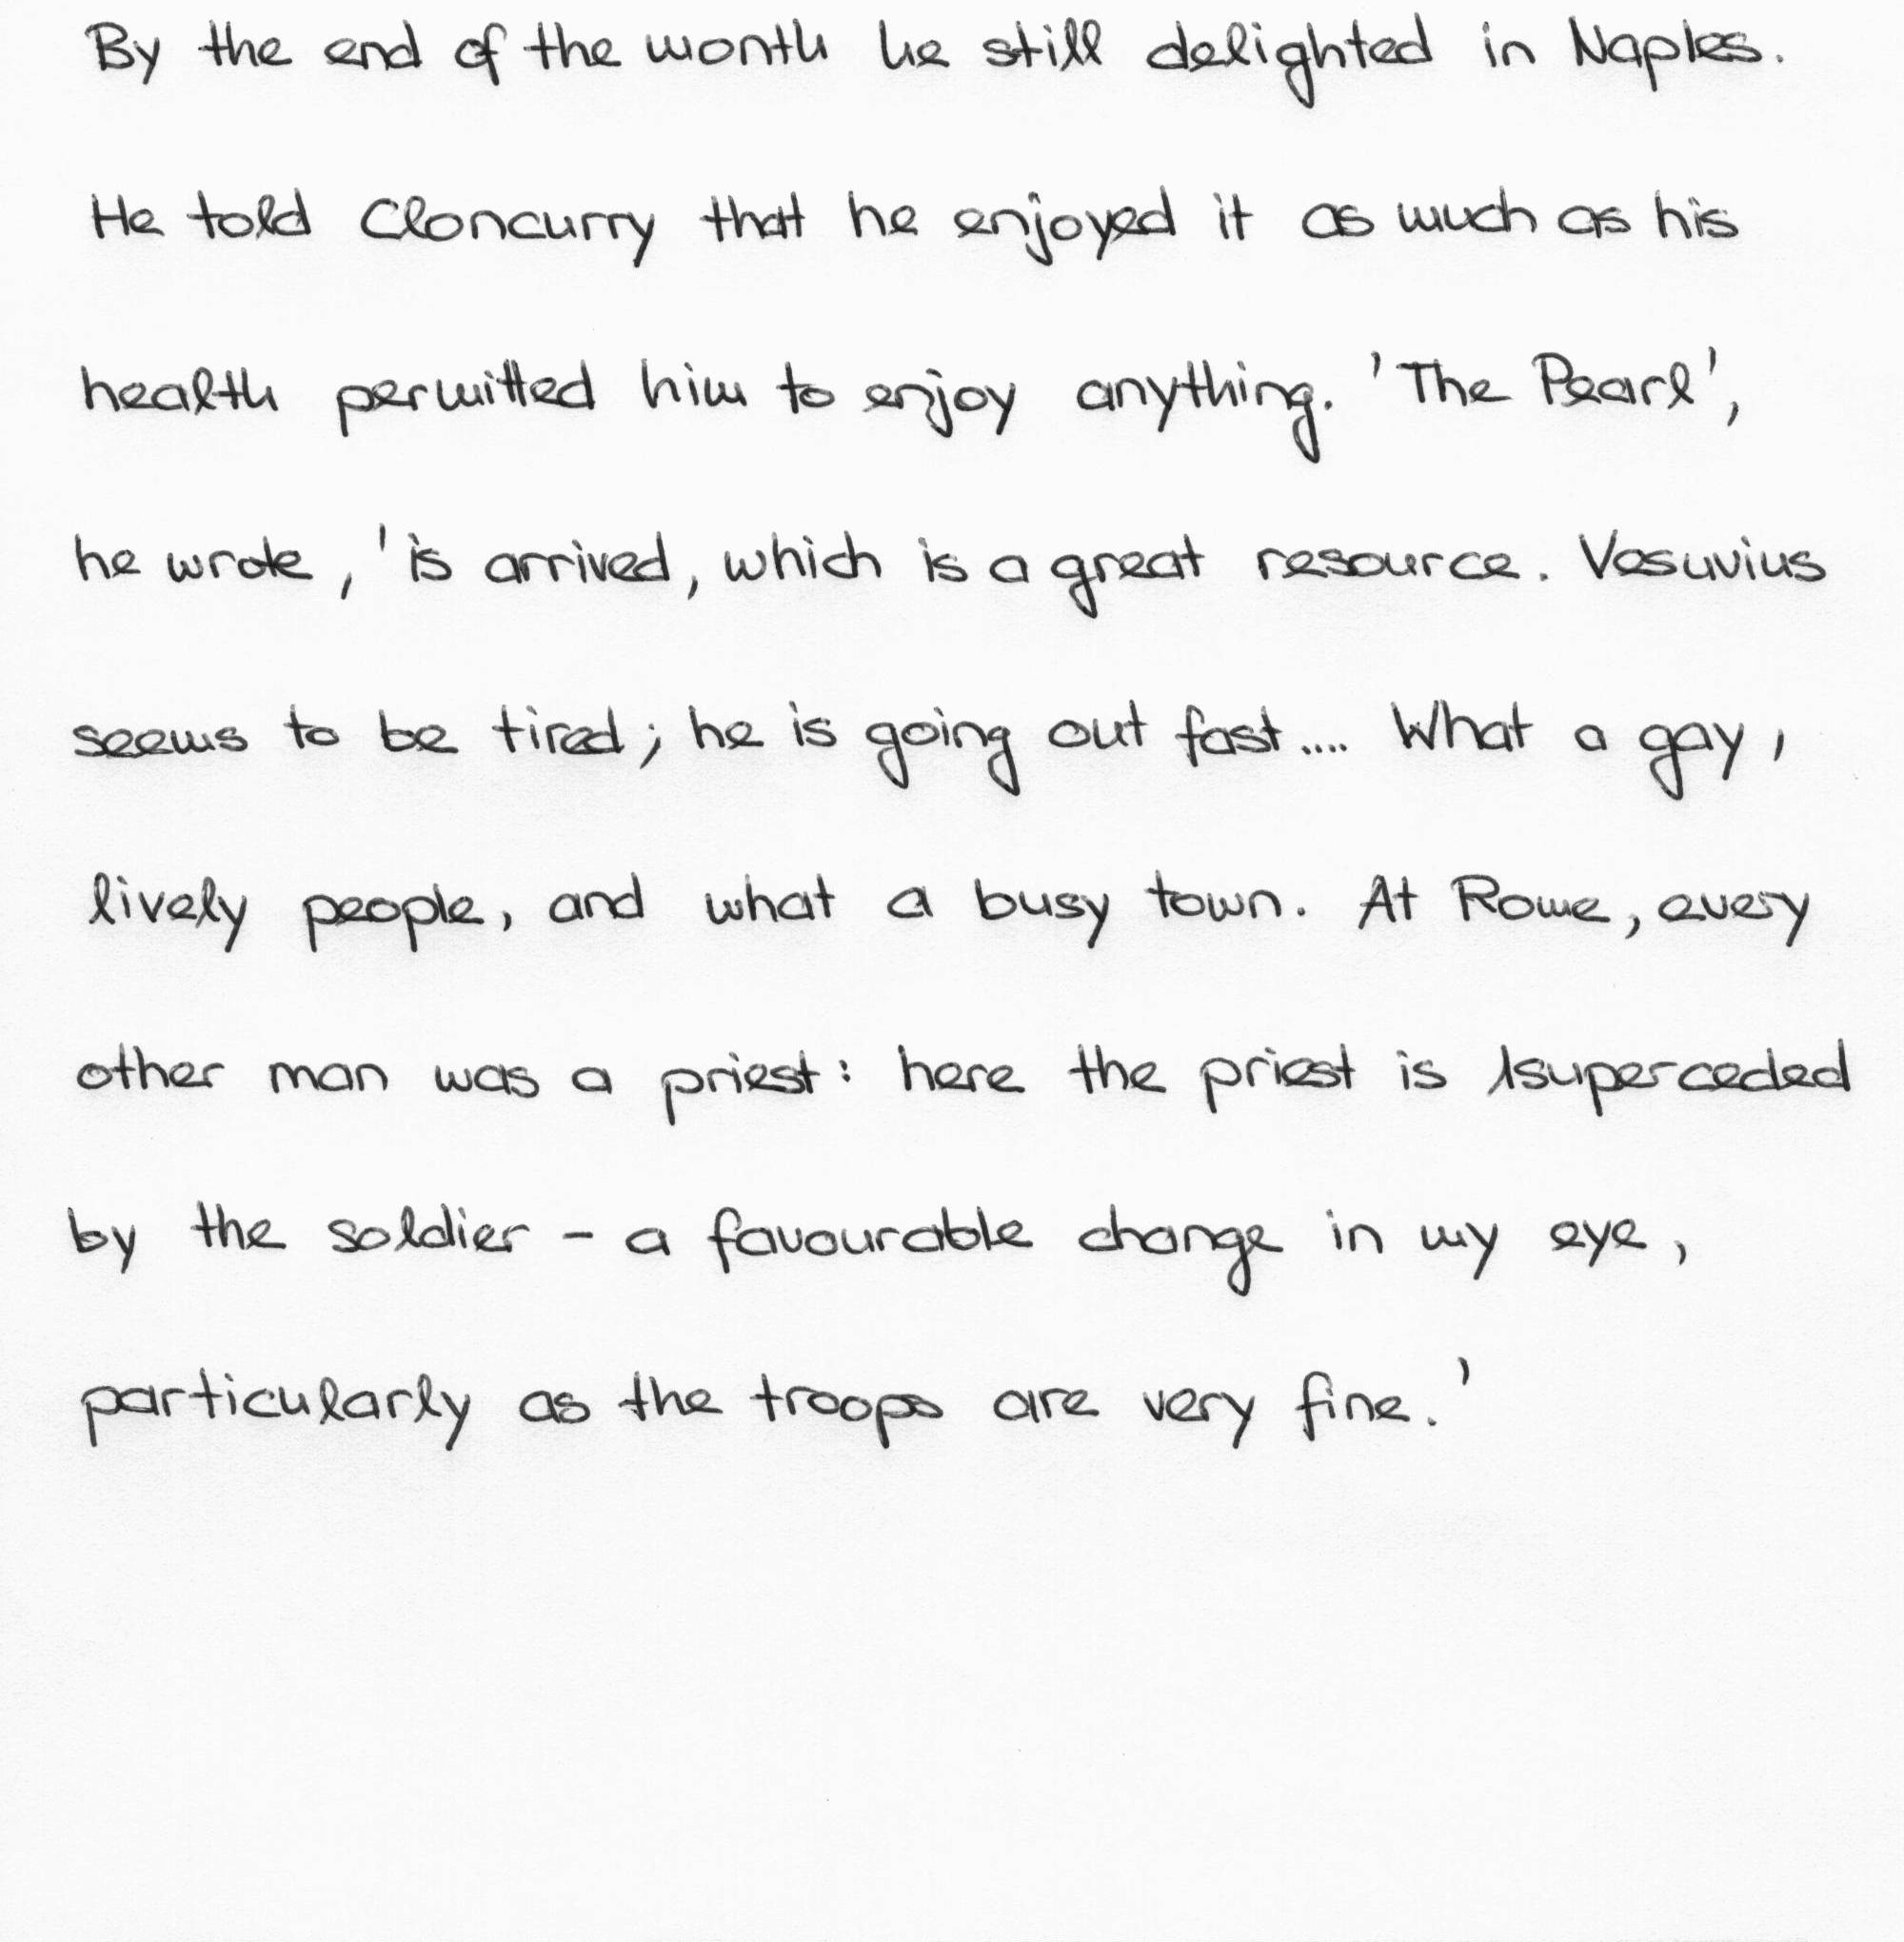 By the end of the month he still delighted in Naples.
He told Cloncurry that he enjoyed it as much as his
health permitted him to enjoy anything. 'The Pearl',
he wrote, 'is arrived, which is a great resource. Vesuvius
seems to be tired; he is going out fast.... What a gay,
lively people, and what a busy town. At Rome, every
other man was a priest: here the priest is superceded
by the soldier - a favourable change in my eye,
particularly as the troops are very fine.'